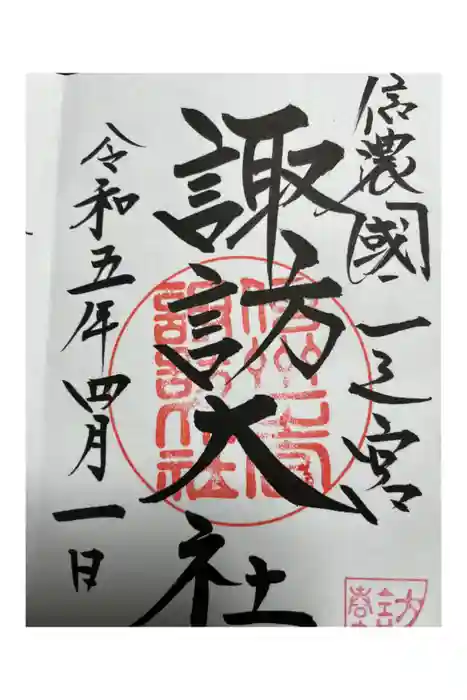 信農國一之宮
諏訪大社
令和五年四月一日